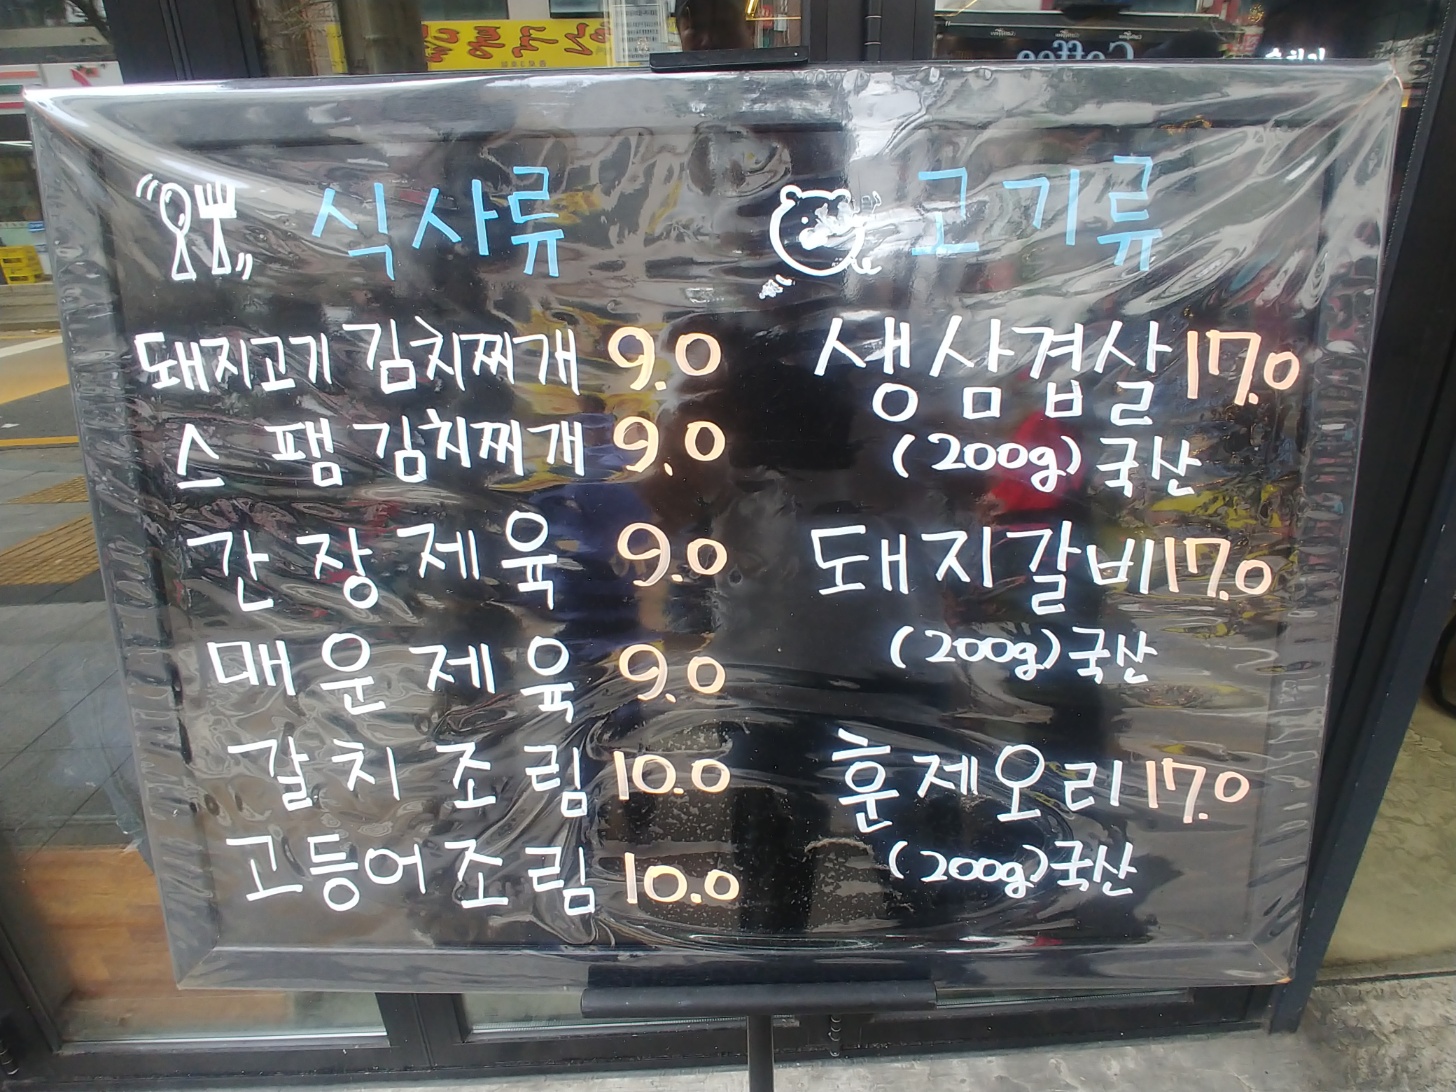 Coffee
식사류
돼지고기 김치찌개 9.0
스팸 김치찌개 9.0
간장제육 9.0
매운제육 9.0
갈치조림 10.0
고등어조림 10.0
고기류
생삼겹살 17.0
(200g) 국산
돼지갈비 17.0
(200g) 국산
훈제오리 17.0
(200g) 국산